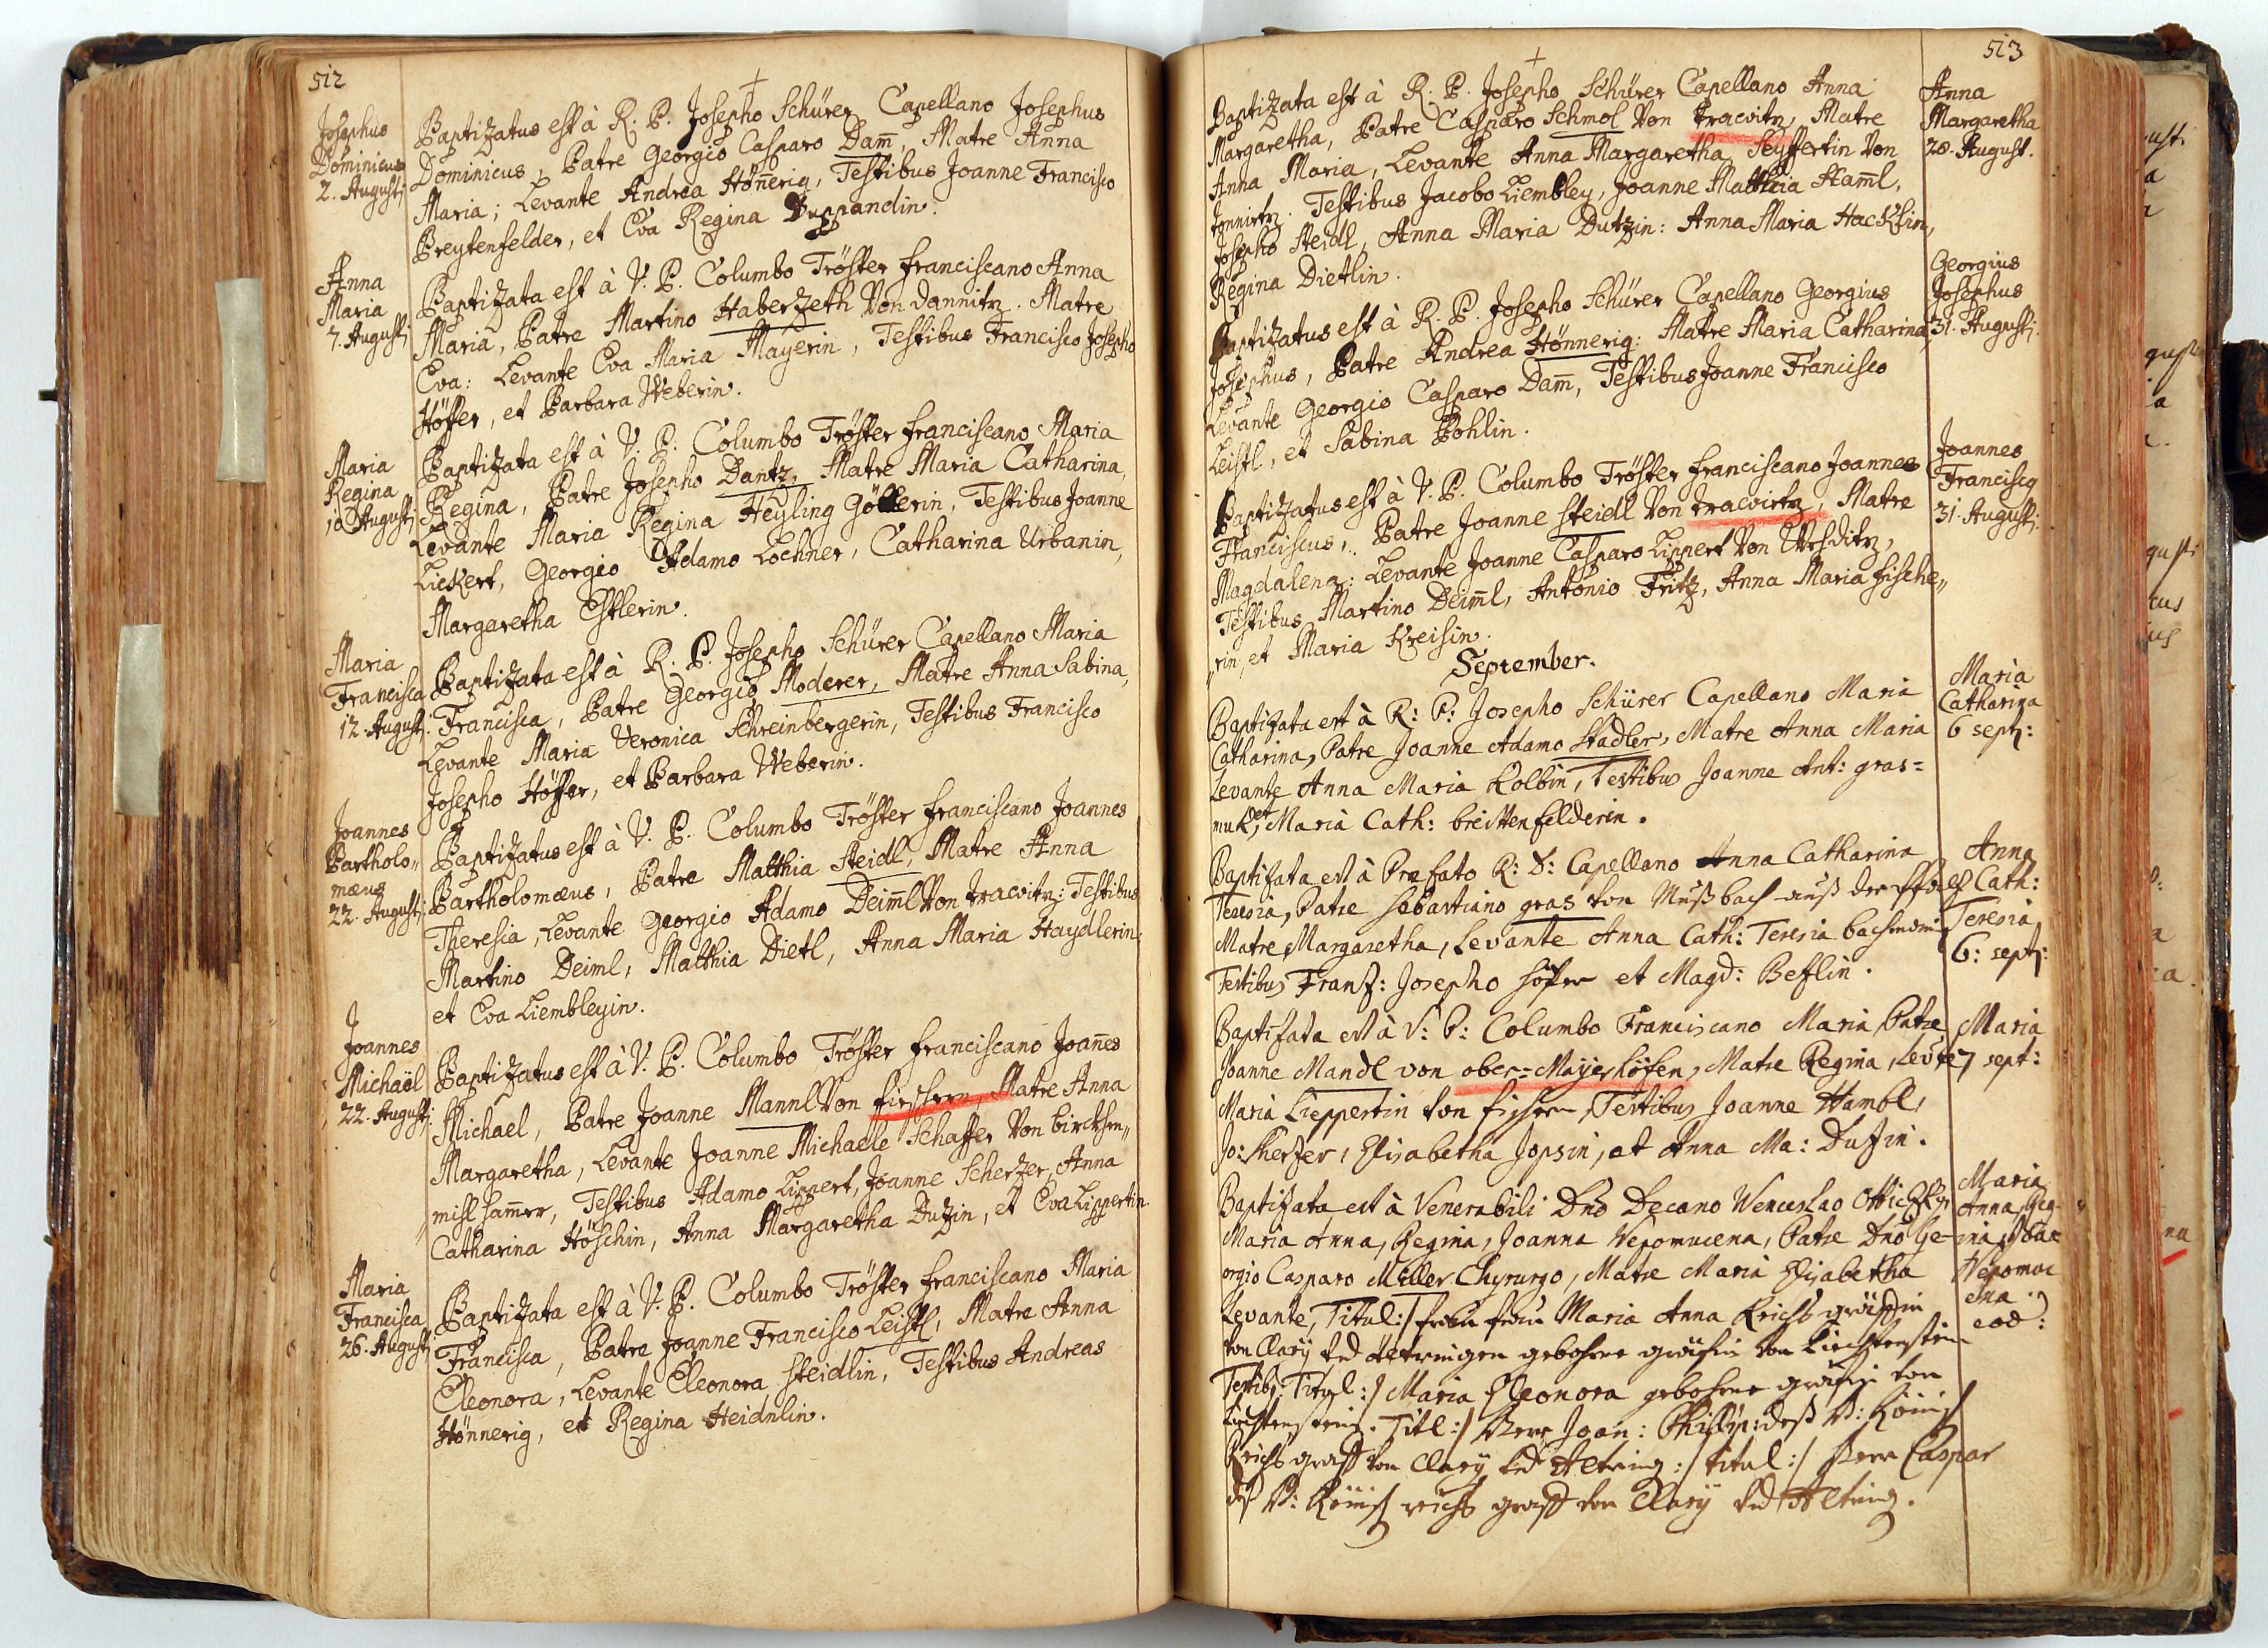 512
Josephus
Dominicus
2. Augusti
Baptizatus est à R. P. Josepho Schürer Capellano Josephus
Dominicus, Patre Georgio Casparo Dam̄, Matre Anna
Maria; Levante Andrea Hön̄erig, Testibus Joanne Francisco
Breytenfelder, et Eva Regina Duppandin.
Anna
Maria
7. Augusti
Baptizata est à V. P. Columbo Tröster franciscano Anna
Maria, Patre Martino Haberzeth Von dannitz. Matre
Eva: Levante Eva Maria Mayerin, Testibus Francisco Josepho
Höffer, et Barbara Weberin.
Maria
Regina
10 Augusti
Baptizata est à V. P. Columbo Tröster franciscano Maria
Regina, Patre Josepho Dantz, Matre Maria Catharina,
Levante Maria Regina Heyling Göttlerin, Testibus Joanne
Lickert, Georgio Adamo Lochner, Catharina Urbanin,
Margaretha Estlerin.
Maria
Francisca
12. Augusti:
Baptizata est à R. P. Josepho Schürer Capellano Maria
Francisca, Patre Georgio Moderer, Matre Anna Sabina,
Levante Maria Veronica Schreinbergerin, Testibus Francisco
Josepho Höffer, et Barbara Weberin.
Joannes
Bartholo„
mæus
22. Augusti:
Baptizatus est à V. P. Columbo Tröster franciscano Joannes
Bartholomæus, Patre Matthia Steidl, Matre Anna
Theresia, Levante Georgio Adamo Deim̄l Von tracvitz; Testibus
Martino Deiml, Matthia Dietl, Anna Maria Haydlerin,
et Eva Liembleyin.
Joannes
Michaël
22. Augusti:
Baptizatus est à V. P. Columbo Tröster franciscano Joan̄es
Michael, Patre Joanne Mannl Von fischern, Matre Anna
Margaretha, Levante Joanne Michaele Schaffer Von bircksen„
„mihl ham̄er, Testibus Adamo Lippert, Joanne Scherzer, Anna
Catharina Höschin, Anna Margaretha Dutzin, et Eva Lippertin
Maria
Francisca
26. Augusti
Baptizata est à V. P. Columbo Tröster franciscano Maria
Francisca, Patre Joanne Francisco Leistl, Matre Anna
Eleonora, Levante Eleonora Steidlin, Testibus Andreas
Hönnerig, et Regina Heidnlin.
513
Baptizata est à R. P. Josepho Schürer Capellano Anna
Margaretha, Patre Casparo Schmol Von tracvitz, Matre
Anna Maria, Levante Anna Margaretha Seyffertin Von
Testibus Jacobo Liembley, Joanne Matthia Ham̄l,
Josepho Steidl, Anna Maria Dutzin: Anna Maria Hacklin,
Regina Dietlin.
Anna
Margaretha
28. August.
Baptizatus est à R. P. Josepho Schürer Capellano Georgius
Josephus, Patre Andrea Hönnerig: Matre Maria Catharina,
Levante Georgio Casparo Dam̄, Testibus Joanne Francisco
Leistl, et Sabina Pohlin.
Georgius
Josephus
31. Augusti:
Baptizatus est à V. P. Columbo Tröster franciscano Joannes
Franciscus, Patre Joanne Steidl Von tracvitz, Matre
Magdalena: Levante Joanne Casparo Lippert Von
Testibus Martino Deim̄l, Antonio Fritz, Anna Maria fische„
„rin, et Maria Kreisin.
Joannes
Franciscq
31. Augusti:
September.
Baptizata est à R: P: Josepho Schürer Capellano Maria
Catharina, Patre Joanne Adamo Stadler, Matre Anna Maria
Levante Anna Maria Kolbin, Testibus Joanne Ant: gras=
muk, et Maria Cath: breittenfelderin.
Maria
Catharina
6 sept:
Baptizata est à Præfato R: D: Capellano Anna Catharina
Teresia, Patre Sebastiano gras von Mußbach auß der Pfaltz
Matre Margaretha, Levante Anna Cath: Teresia
Testibus Franz: Josepho Höfer et Magd: Beßlin.
Anna
Cath:
Teresia
6: sept:
Baptizata est à V: P: Columbo Franciscano Maria, Patre
Joanne Mandl von ober=Mayerhöfen, Matre Regina, Levte
Maria Lieppertin von fischern, Testibus Joanne Hambl,
Jo: Scherzer, Elisabetha Jopsin, et Anna Ma: Duzin.
Maria
7 sept:
Baptizata est à Venerabili Dno Decano Wenceslao
Maria Anna, Regina, Joanna Nepomucena, Patre Dno Ge=
orgio Casparo Miller Chyrurgo, Matre Maria Elisabetha
Levante, Titul:/ frau frau Maria Anna Reichs gräffin
von Clary und altringen gebohrne gräfin von Liechtenstein
Testibq: Titul:/ Maria Eleonora gebohrne gräfin von
Liechtenstein. Titl:/ Herr Joan: Philip: deß H: Röm:
Reichs graff von Clary und Altring:/ titul:/ Herr Caspar
deß H: Röm: reichs graff von Clary und Altring.
Maria
Anna, Reg=
ina, Joan̄
Nepomuc
ena.
eod: